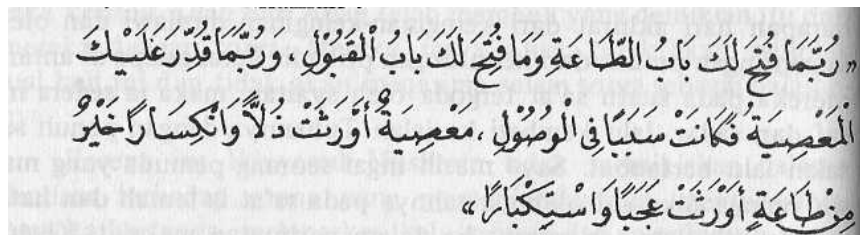 « رُبَّمَا فُتِحَ لَكَ بَابُ الطَّاعَةِ وَمَا فُتِحَ لَكَ بَابُ الْقَبُوْلِ ، وَرُبَّمَا قُدِّرَ عَلَيْكَ
الْمَعْصِيَةُ فَكَانَتْ سَبَبًا فِى الْوُصُوْلِ ، مَعْصِيَةٌ أَوْرَثَتْ ذَلاًّ وَانْكِسَارًا خَيْرٌ
مِنْ طَاعَةٍ أَوْرَثَتْ عُجْبًا وَاسْتِكْبَارًا »